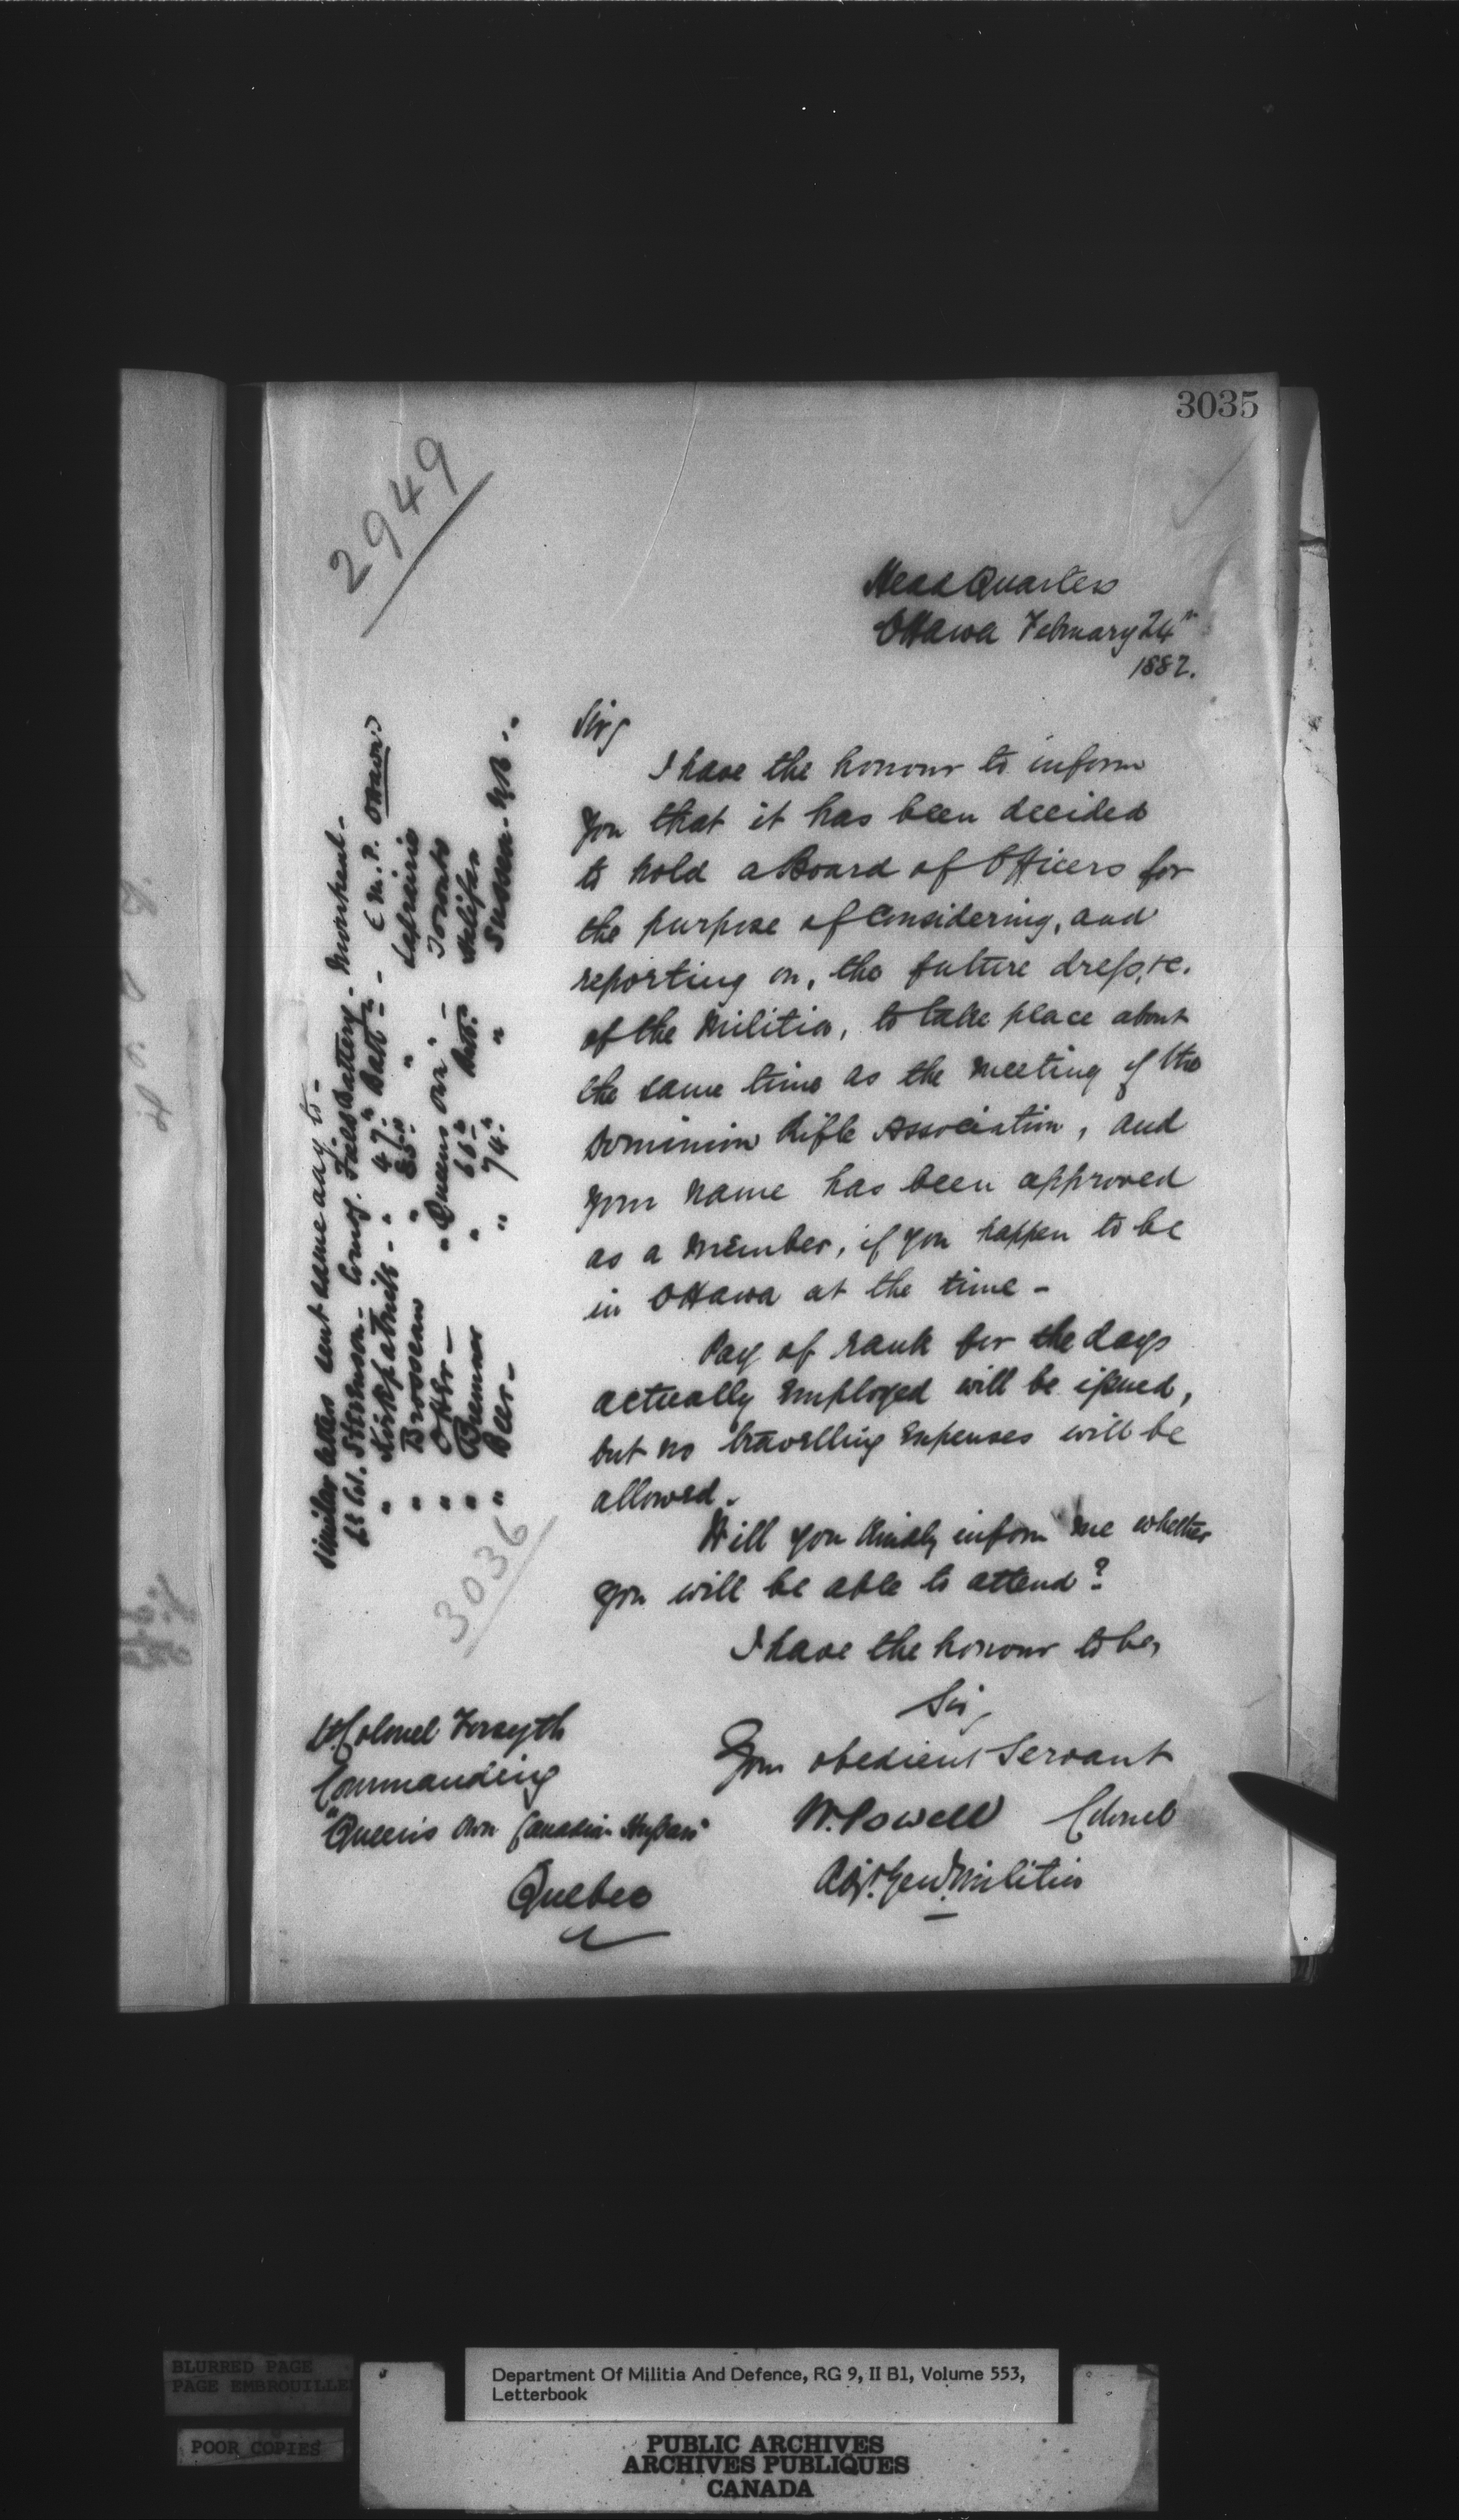 3035
2949
Head Quarters
Ottawa February 24th
1882.
Sir,
I have the honour to inform
you that it has been decided
to hold a Board of Officers for
the purpose of considering, and
reporting on, the future dress, &c.
of the Militia, to take place about
the same time as the meeting of the
Dominion Rifle Association, and
your name has been approved
as a member, if you happen to be
in Ottawa at the time -
Pay of rank for the days
actually employed will be issued,
but no travelling expenses will be
allowed.
Will you kindly inform me whether
you will be able to attend?
I have the honour to be,
Sir,
Your obedient Servant
W. Powell Colonel
Adjt. Genl. Militia
Lt. Colonel Forsyth
Commanding
"Queen's Own Canadian Hussars"
Quebec
similar letters sent same day to -
Lt Col. Stevenson - Comg. Field Battery - Montreal -
" Kirkpatrick - " 47th Batt - (M.P. Ottawa)
" Brosseau " 85th " Laprairie
" Otter - " Queens Own - Toronto
" Bremner " 66th Batt. Halifax
" Beer - " 74th " Sussex - N.B.
3036
BLURRED PAGE
PAGE EMBROUILLEE
POOR COPIES
Department Of Militia And Defence, RG 9, II B1, Volume 553,
Letterbook
PUBLIC ARCHIVES
ARCHIVES PUBLIQUES
CANADA